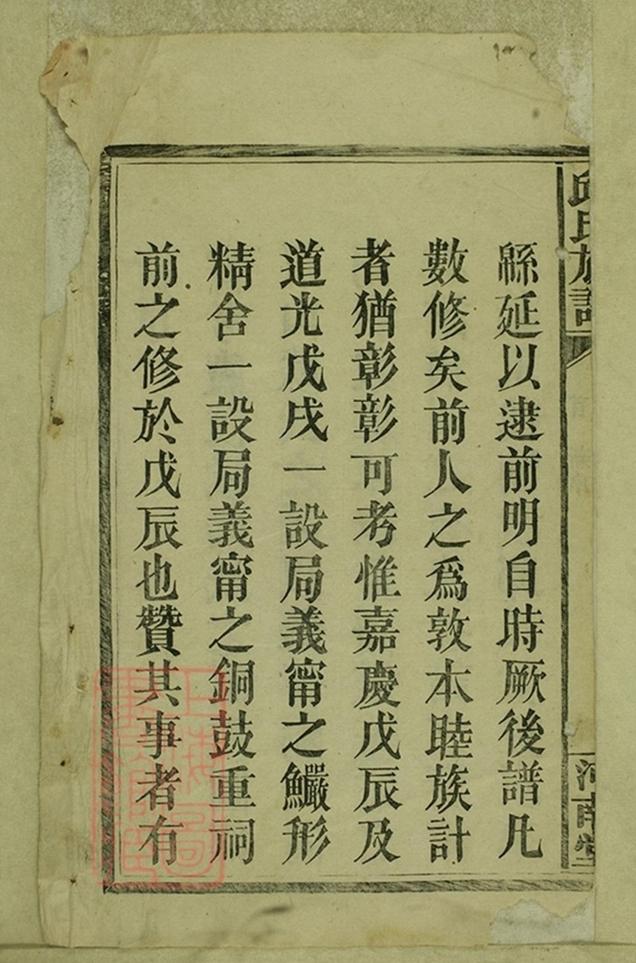 邱氏族譜
河南堂
緜延以逮前明自時厥後譜凡
數修矣前人之爲敦本睦族計
者猶彰彰可考惟嘉慶戊辰及
道光戊戌一設局義甯之鱺形
精舍一設局義甯之銅鼓重祠
前之修於戊辰也贊其事者有